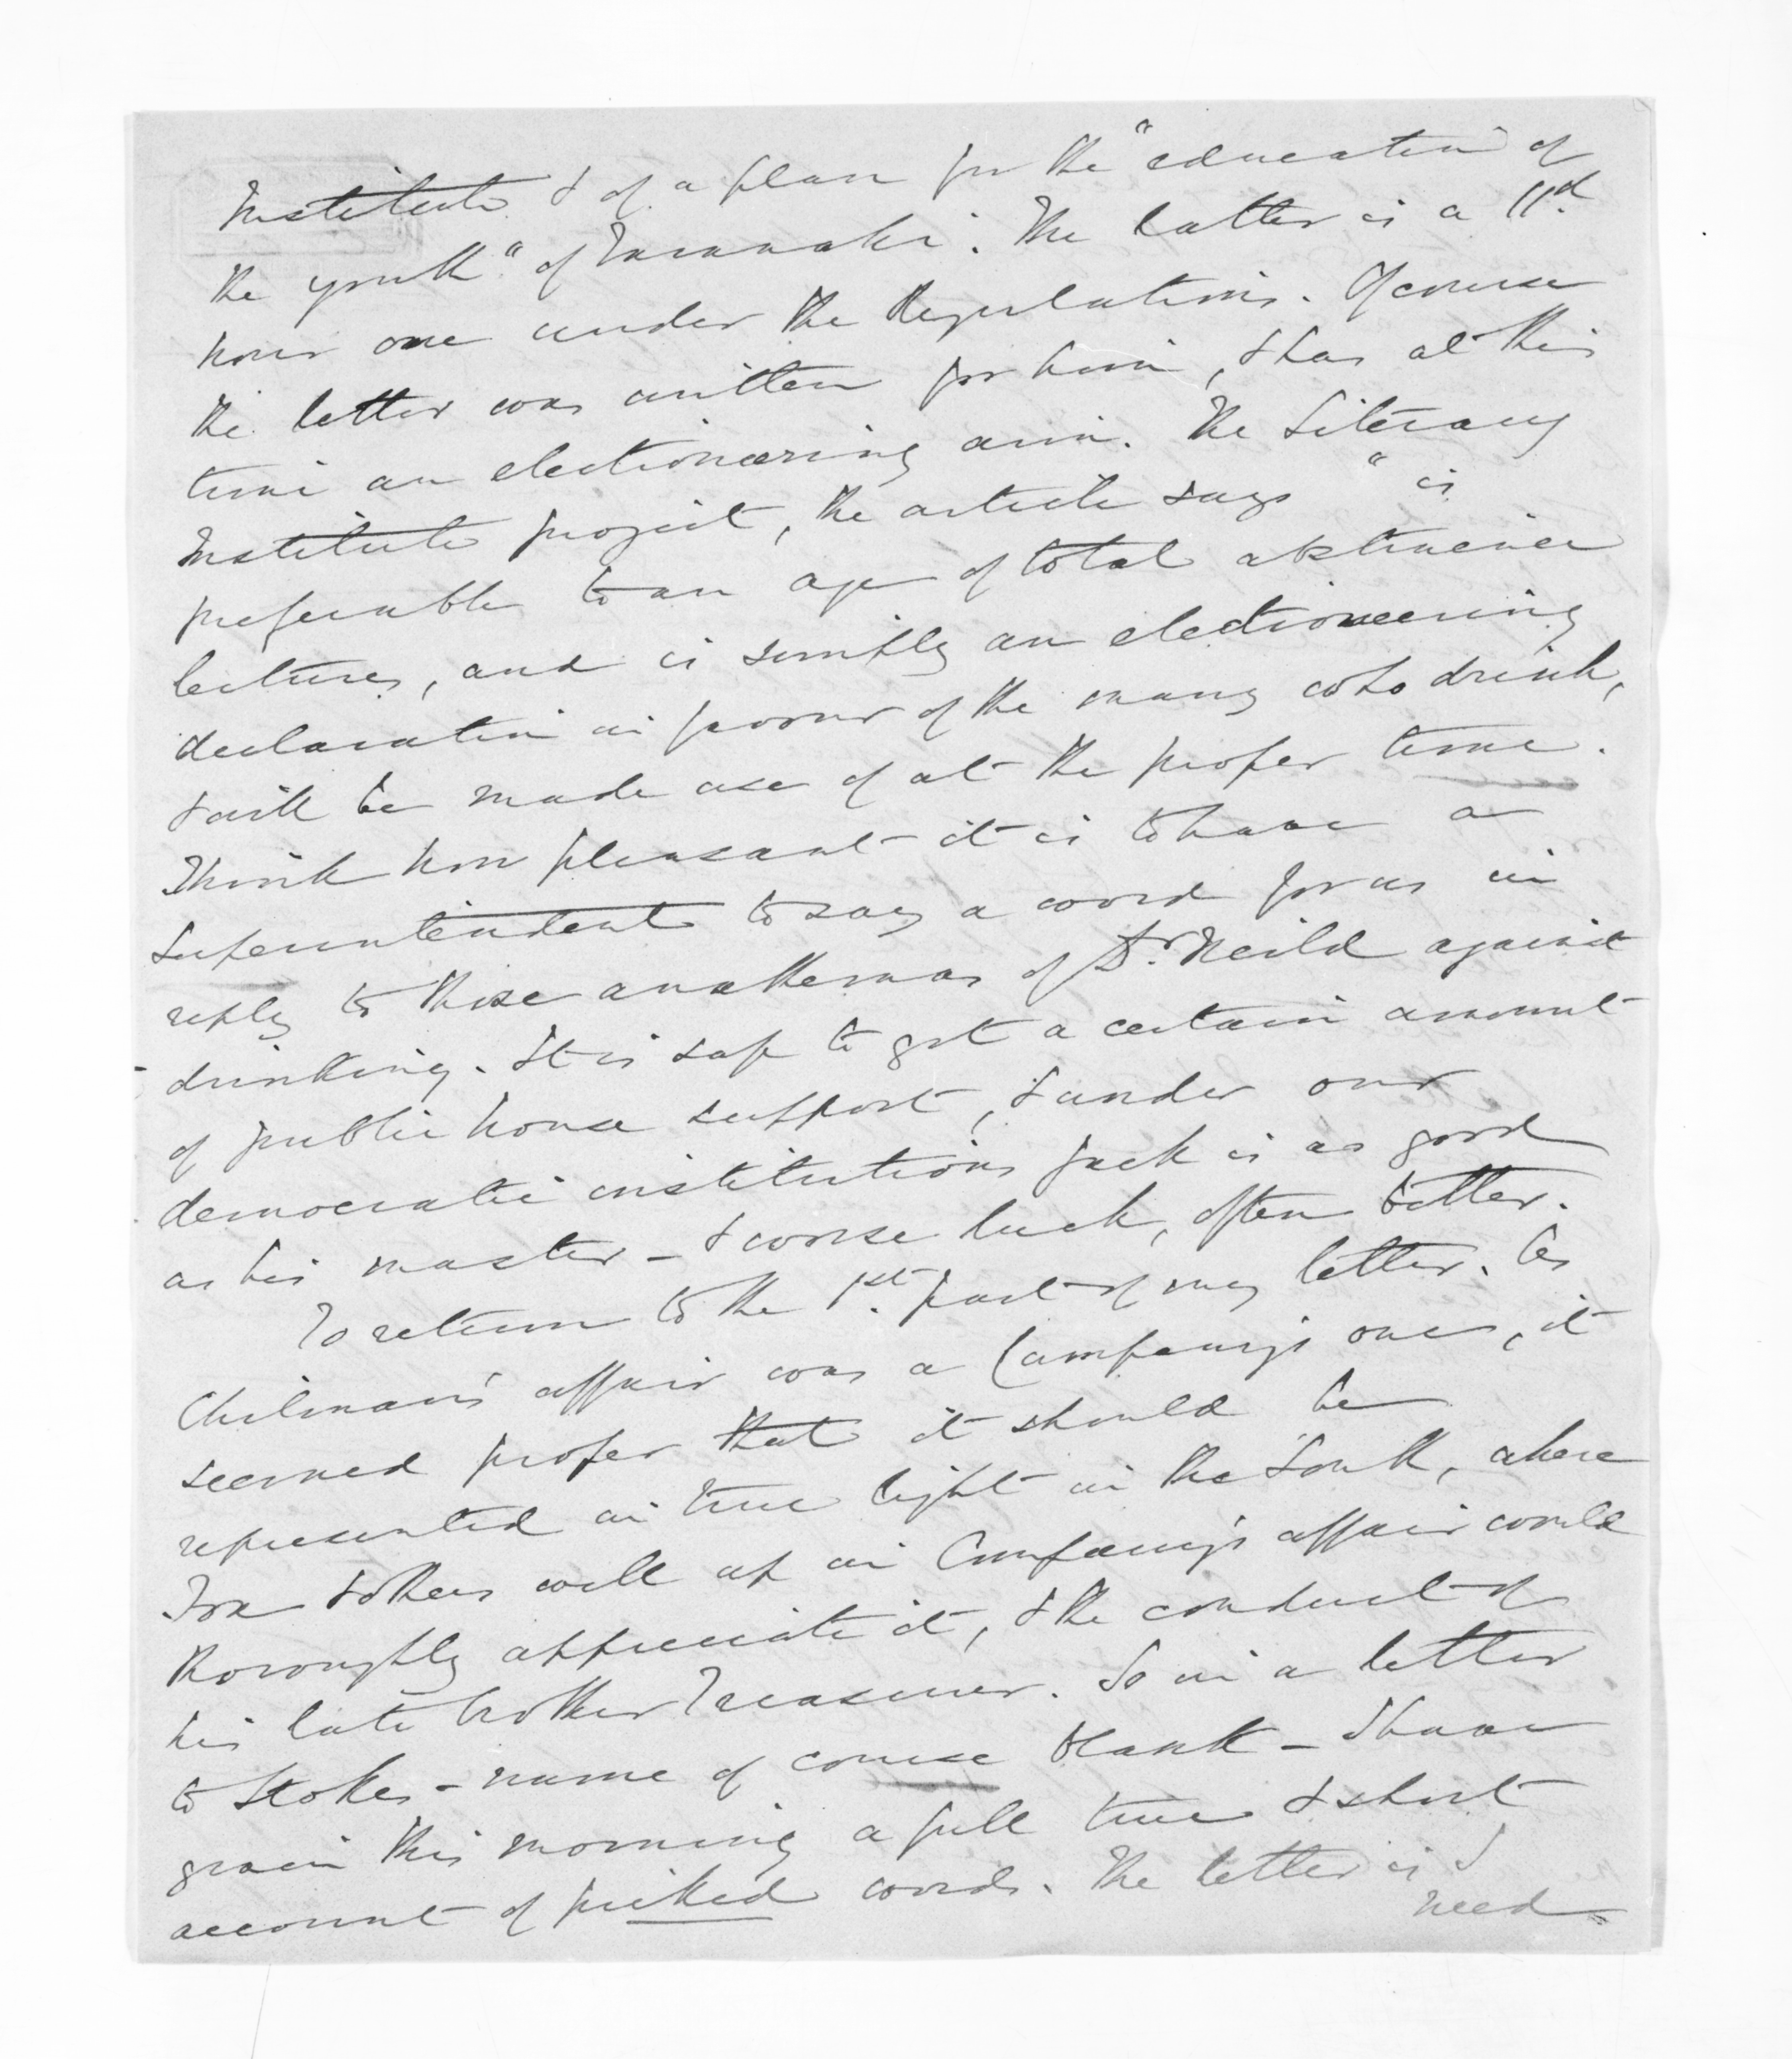 Institute & of a plan for the "education of
the youth" of Taranaki. The latter is a 11th
hour one under the Regulations. Of course
the letter was written for him, & has at this
time an electioneering aim. The Literary
Institute project, the article says "is
preferable to an age of total abstinence
lectures, and is simply an electioneering
declaration in favour of the many who drink,
& will be made use of at the proper time.
Think how pleasant it is to have a
Superintendent to say a word for us in
reply to those anathemas of Dr. Neild against
drinking. It is safe to get a certain amount
of public house support, & under our
democratic institutions Jack is as good
as his master - & worse luck, often better.
To return to the 1st. part of my letter. As
Chilman's affair was a Company's one, it
seemed proper that it should be
represented in true light in the South, where
Fox & others well up in Company's affair could
thoroughly appreciate it, & the conduct of
his late brother Treasurer. So in a letter
to Stokes - name of course blank - I have
given this morning a full true & short
account of picked words. The letter is I
need